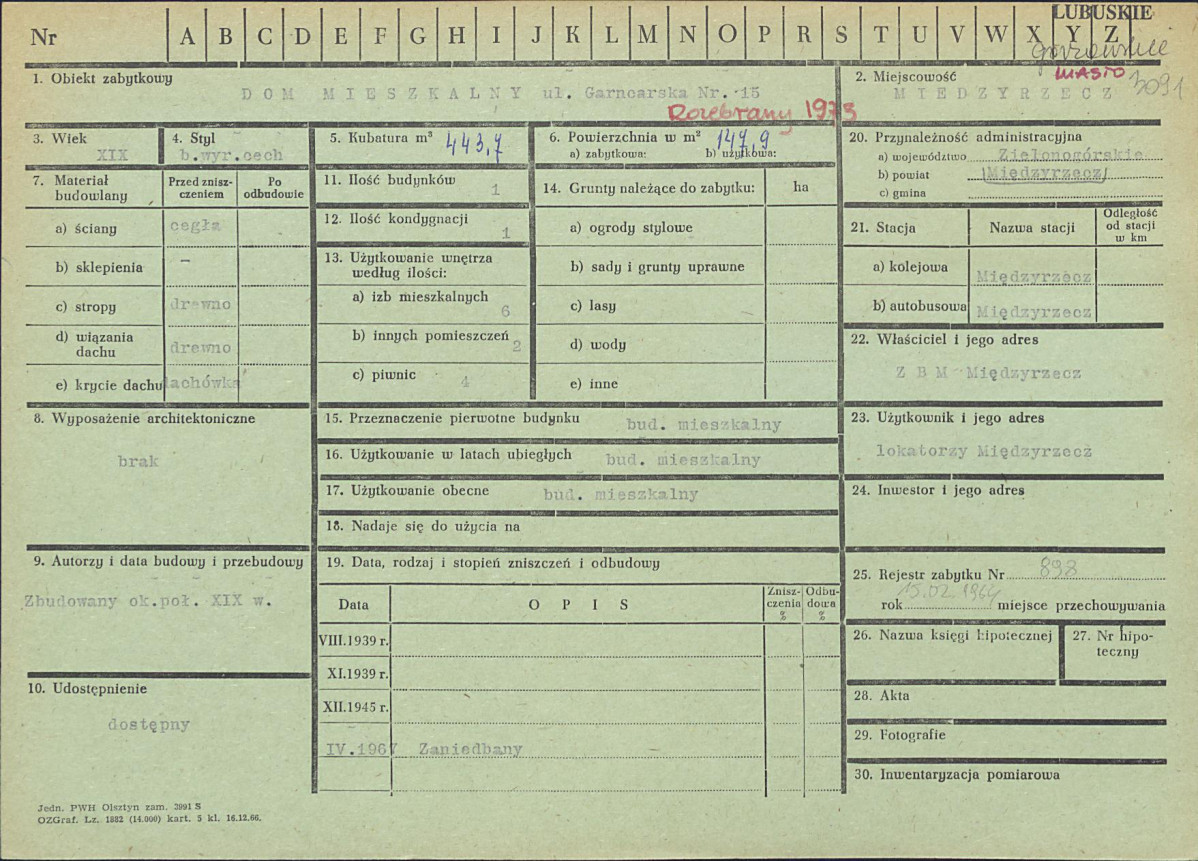 LUBUSKIE
Nr A B C D E F G H I J K L M N O P R S T U V W X Y Z
gorzowskie
1. Obiekt zabytkowy
DOM MIESZKALNY ul. Garncarska Nr. 15
Rozebrany 1973
2. Miejscowość
MIASTO 3091
MIEDZYRZECZ
3. Wiek
XIX
4. Styl
b.wyr.cech
5. Kubatura m³ 443,7
6. Powierzchnia w m² 147,9
a) zabytkowa: b) użytkowa:
20. Przynależność administracyjna
a) województwo Zielonogórskie
b) powiat (Międzyrzecz)
c) gmina
7. Materiał budowlany
Przed zniszczeniem
Po odbudowie
a) ściany cegła
b) sklepienia –
c) stropy drewno
d) wiązania dachu drewno
e) krycie dachu dachówka
11. Ilość budynków 1
12. Ilość kondygnacji 1
13. Użytkowanie wnętrza
według ilości:
a) izb mieszkalnych 6
b) innych pomieszczeń 2
c) piwnic 4
14. Grunty należące do zabytku: ha
a) ogrody stylowe
b) sady i grunty uprawne
c) lasy
d) wody
e) inne
21. Stacja Nazwa stacji Odległość od stacji w km
a) kolejowa Międzyrzecz
b) autobusowa Międzyrzecz
22. Właściciel i jego adres
Z B M Międzyrzecz
8. Wyposażenie architektoniczne
brak
15. Przeznaczenie pierwotne budynku bud. mieszkalny
16. Użytkowanie w latach ubiegłych bud. mieszkalny
17. Użytkowanie obecne bud. mieszkalny
18. Nadaje się do użycia na
23. Użytkownik i jego adres
lokatorzy Międzyrzecz
24. Inwestor i jego adres
9. Autorzy i data budowy i przebudowy
Zbudowany ok.poł. XIX w.
19. Data, rodzaj i stopień zniszczeń i odbudowy
Data O P I S Zniszczenia % Odbudowa %
VIII.1939 r.
XI.1939 r.
XII.1945 r.
IV.1967 Zaniedbany
25. Rejestr zabytku Nr 898
rok 15.02.1964 miejsce przechowywania
26. Nazwa księgi hipotecznej
27. Nr hipoteczny
10. Udostępnienie
dostępny
28. Akta
29. Fotografie
30. Inwentaryzacja pomiarowa
Jedn. PWH Olsztyn zam. 3991 S
OZGraf. Lz. 1882 (14.000) kart. 5 kl. 16.12.66.